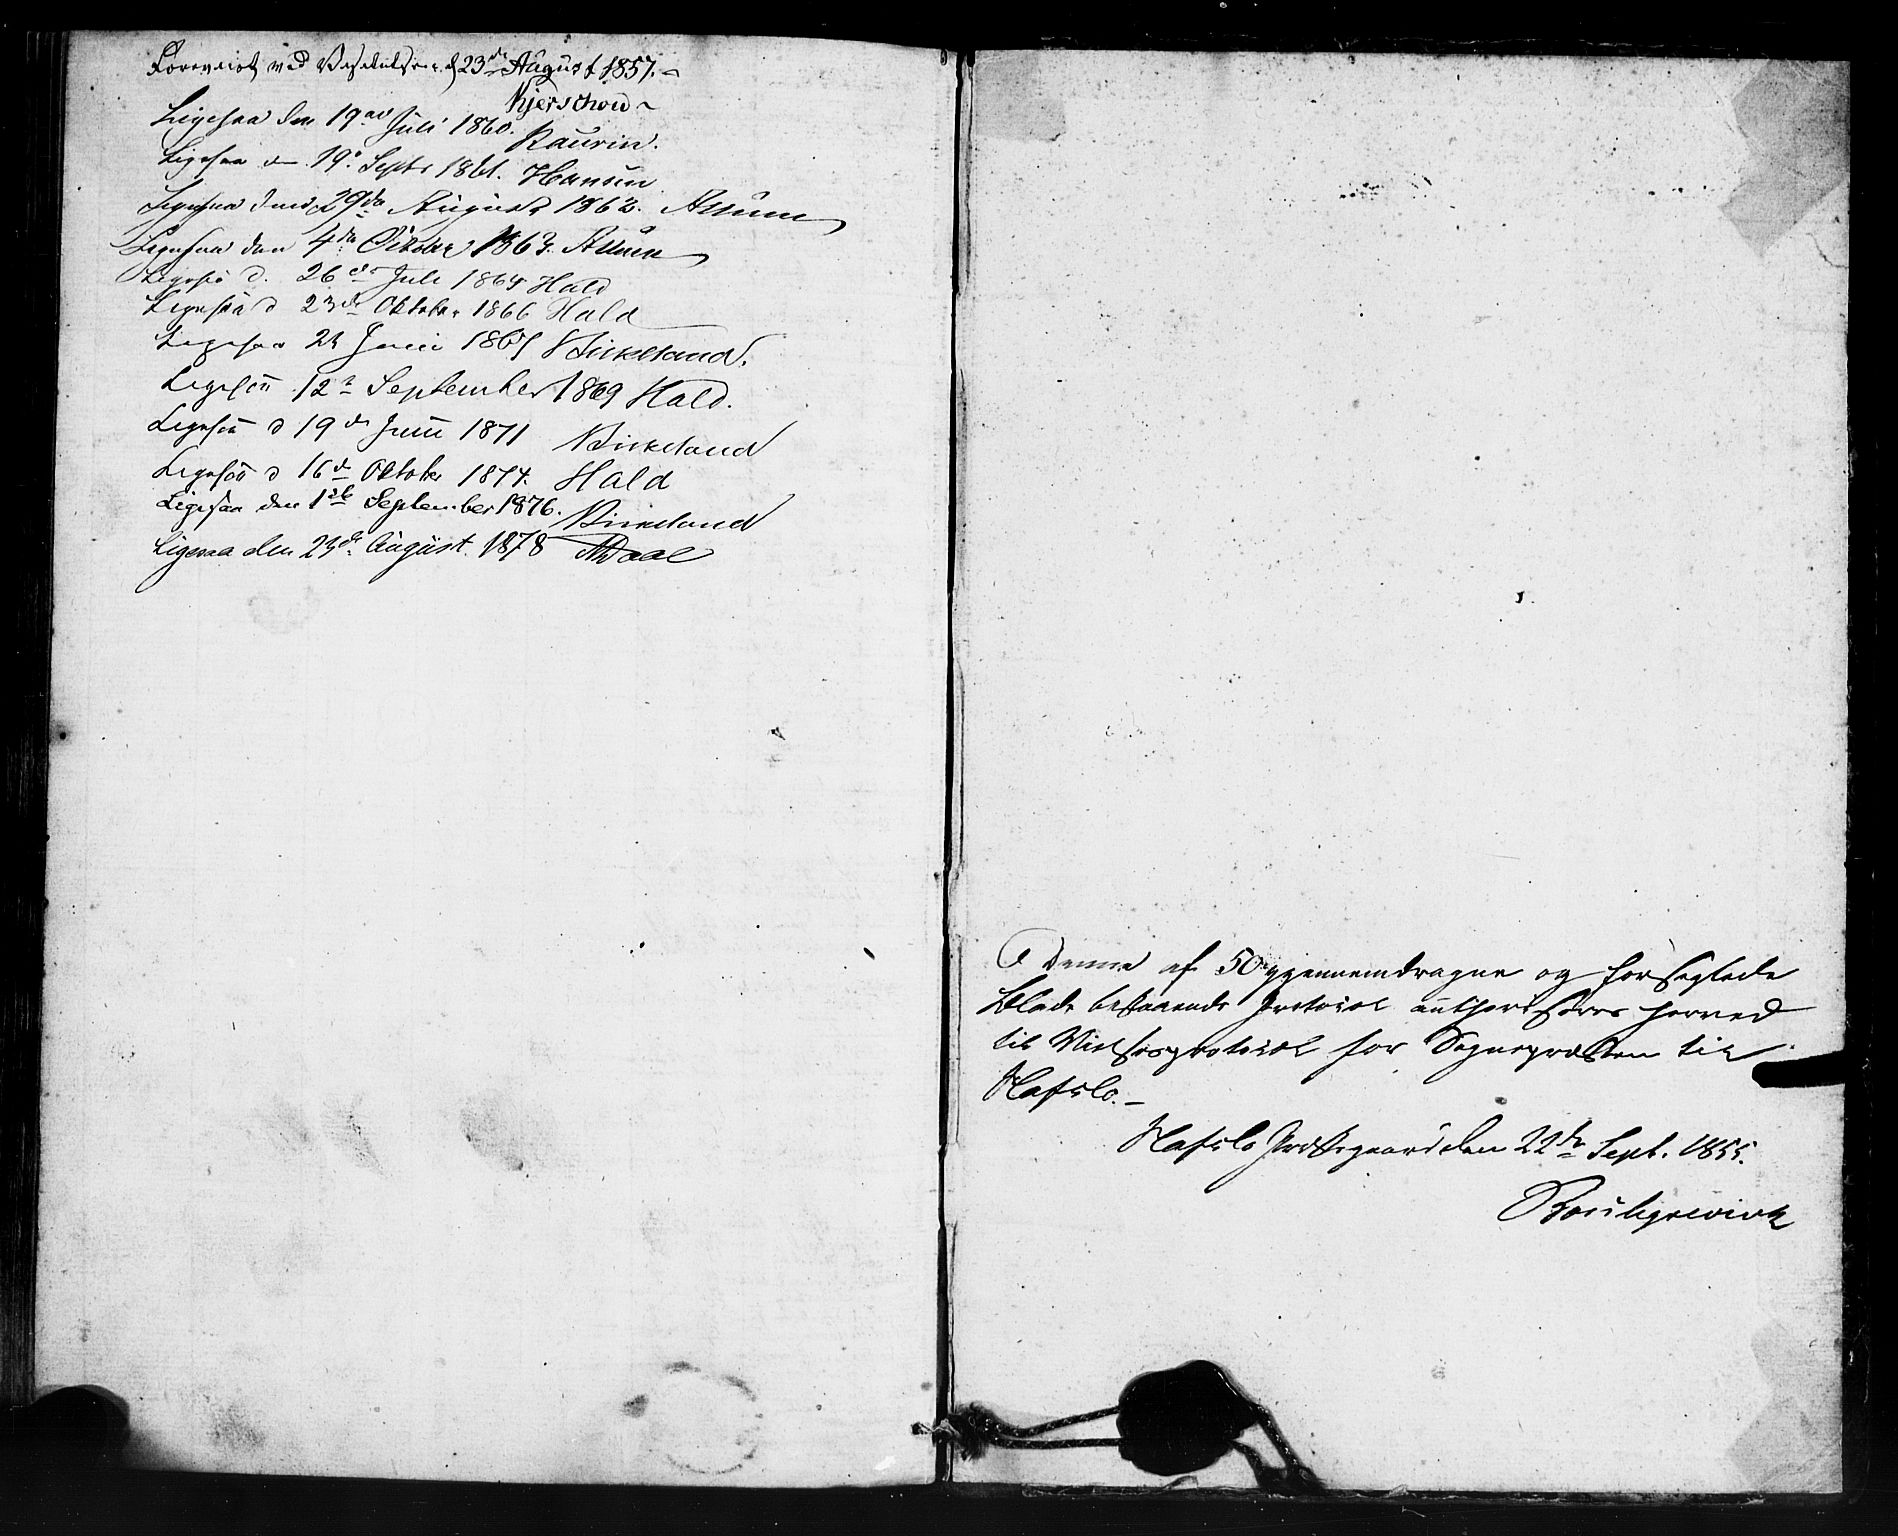 Foreviist ved Visitatsen d 23de August 1857.
Kjerschow
Ligesaa den 19de Juli 1860.
Kaurin.
Ligesaa den 19de Septr 1861. Hansen
Ligesaa den 29de August 1862. Assum
Ligesaa den 4de October 1863. Assum
Ligesaa d. 26de Juli 1864 Hald
Ligesaa d 23de Oktober 1866 Hald
Ligesaa Juni Birkeland.
Ligesaa 12te September 1869 Hald.
Ligesaa d 19de Juni 1871 Birkeland
Ligesaa d 16de Oktober 1874. Hald
Ligesaa den 1ste September 1876. Birkeland
Ligesaa den 23de August 1878 Daae
Denne af 50 gjennemdragne og forseglede
Blade bestaaende Protocol authoriseres herved
til Vielsesprotocol for Sognepræsten til
Hafslo.
Hafslo Præstegaard den 22de Sept. 1855.